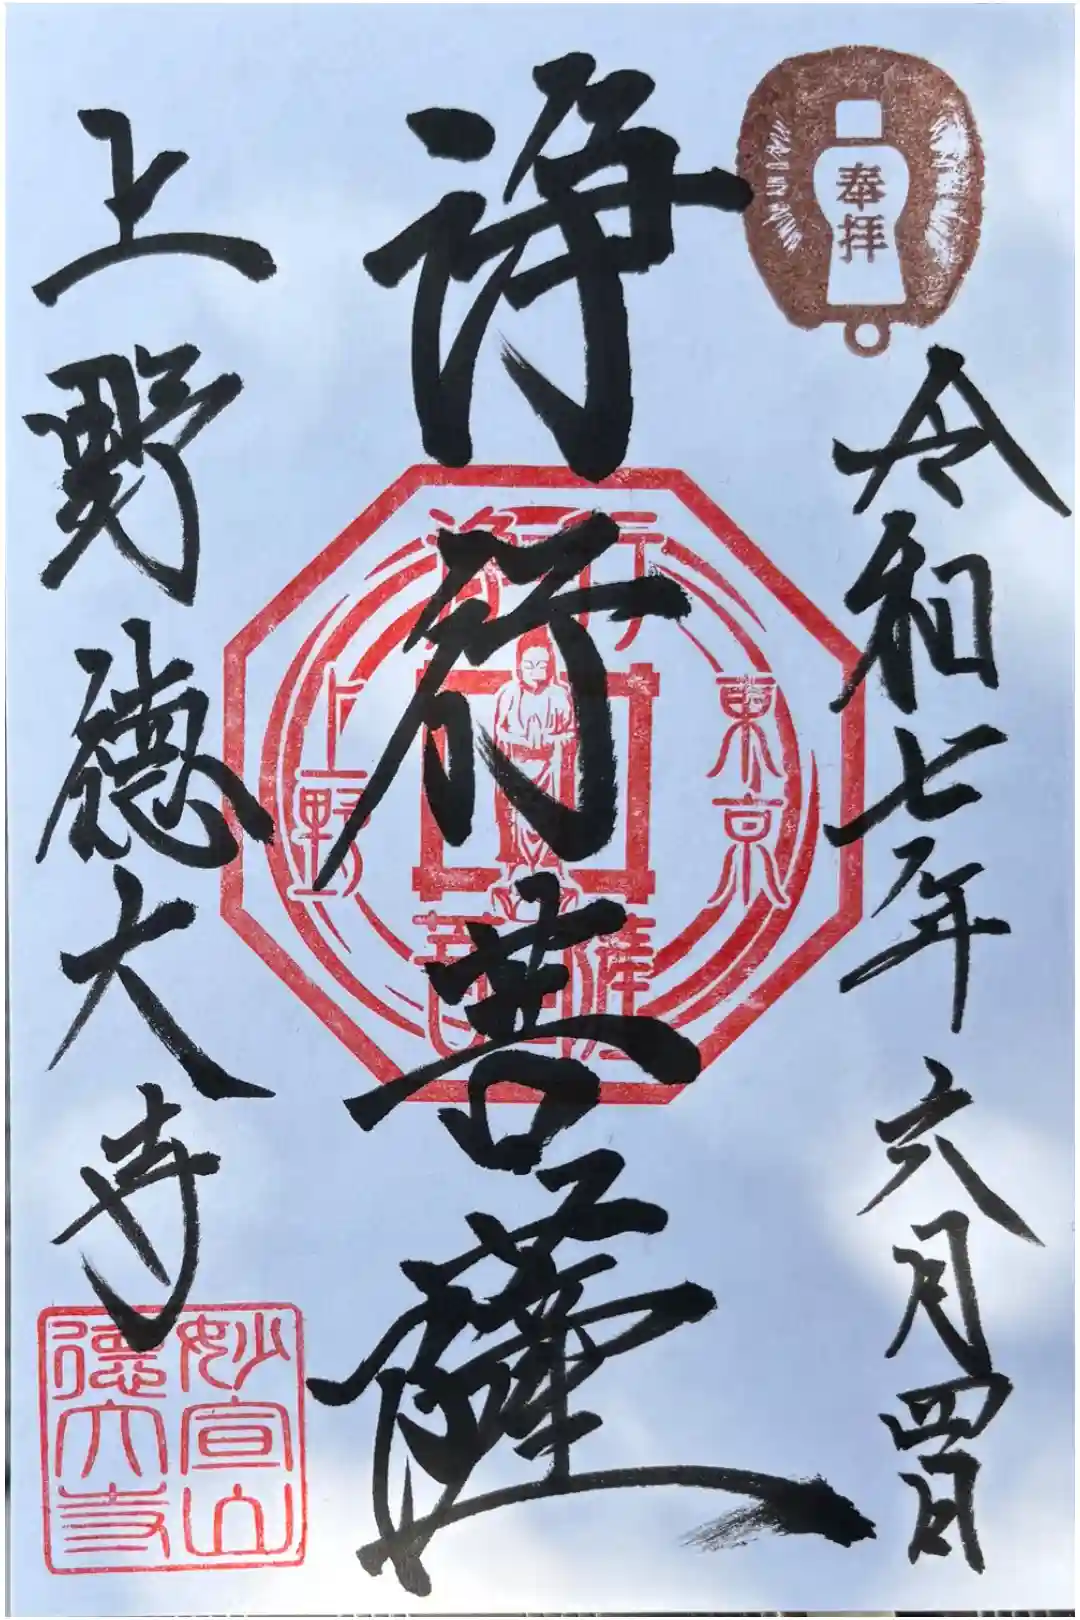 奉拝
令和七年六月四日
浄行菩薩
浄行
東京
上野
菩薩
上野德大寺
妙宣山
德大寺